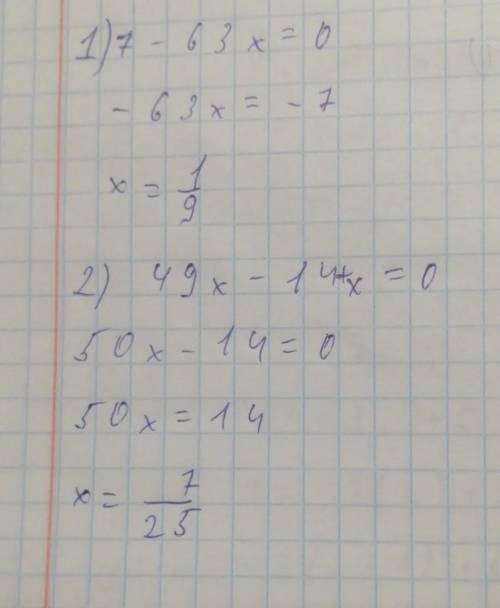 1) 7 - 63x = 0
- 63x = - 7
x = 1/9
2) 49x - 14+x = 0
50x - 14 = 0
50x = 14
x = 7/25